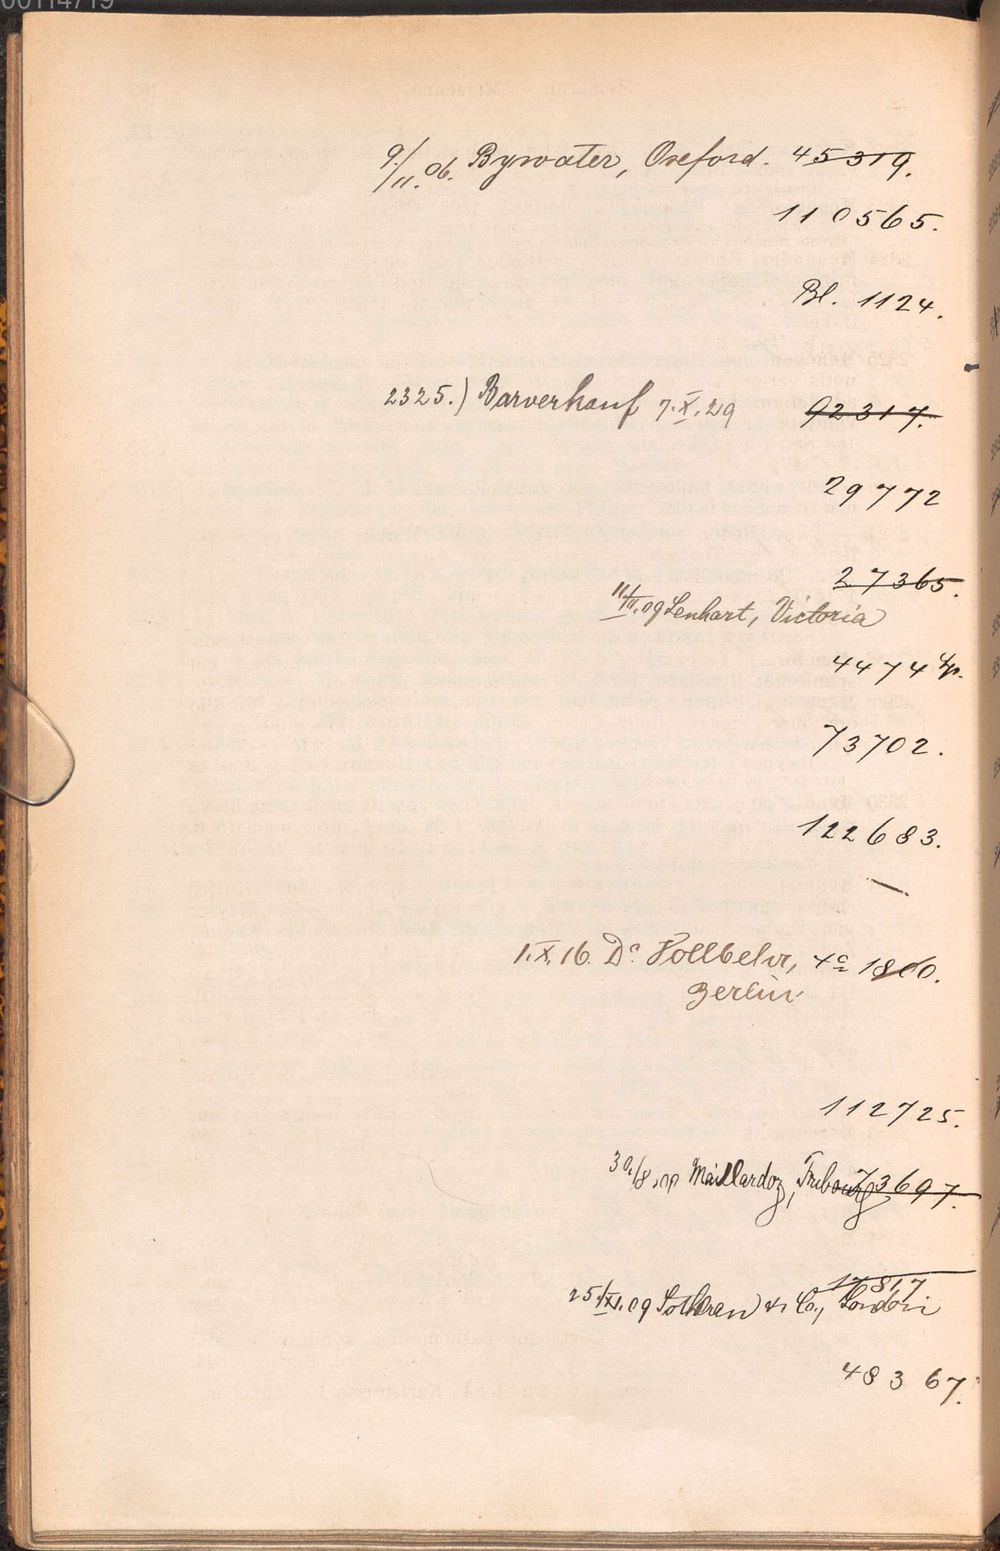 00114719
9./11.06. Bywater, Oxeford. 45319.
110565.
Bl. 1124.
2325.) Barverkauf 7.X.29 92317.
29772
27365.
11/II.09 Lenhart, Victoria
4474
73702.
122683.
1.X.16. Dr. Vollbehr, 4º 1800.
Berlin
112725.
30./8. Maillardoz, Fribourg 73697.
17817
25/XI.09 Sotheran & Co., London
48367.